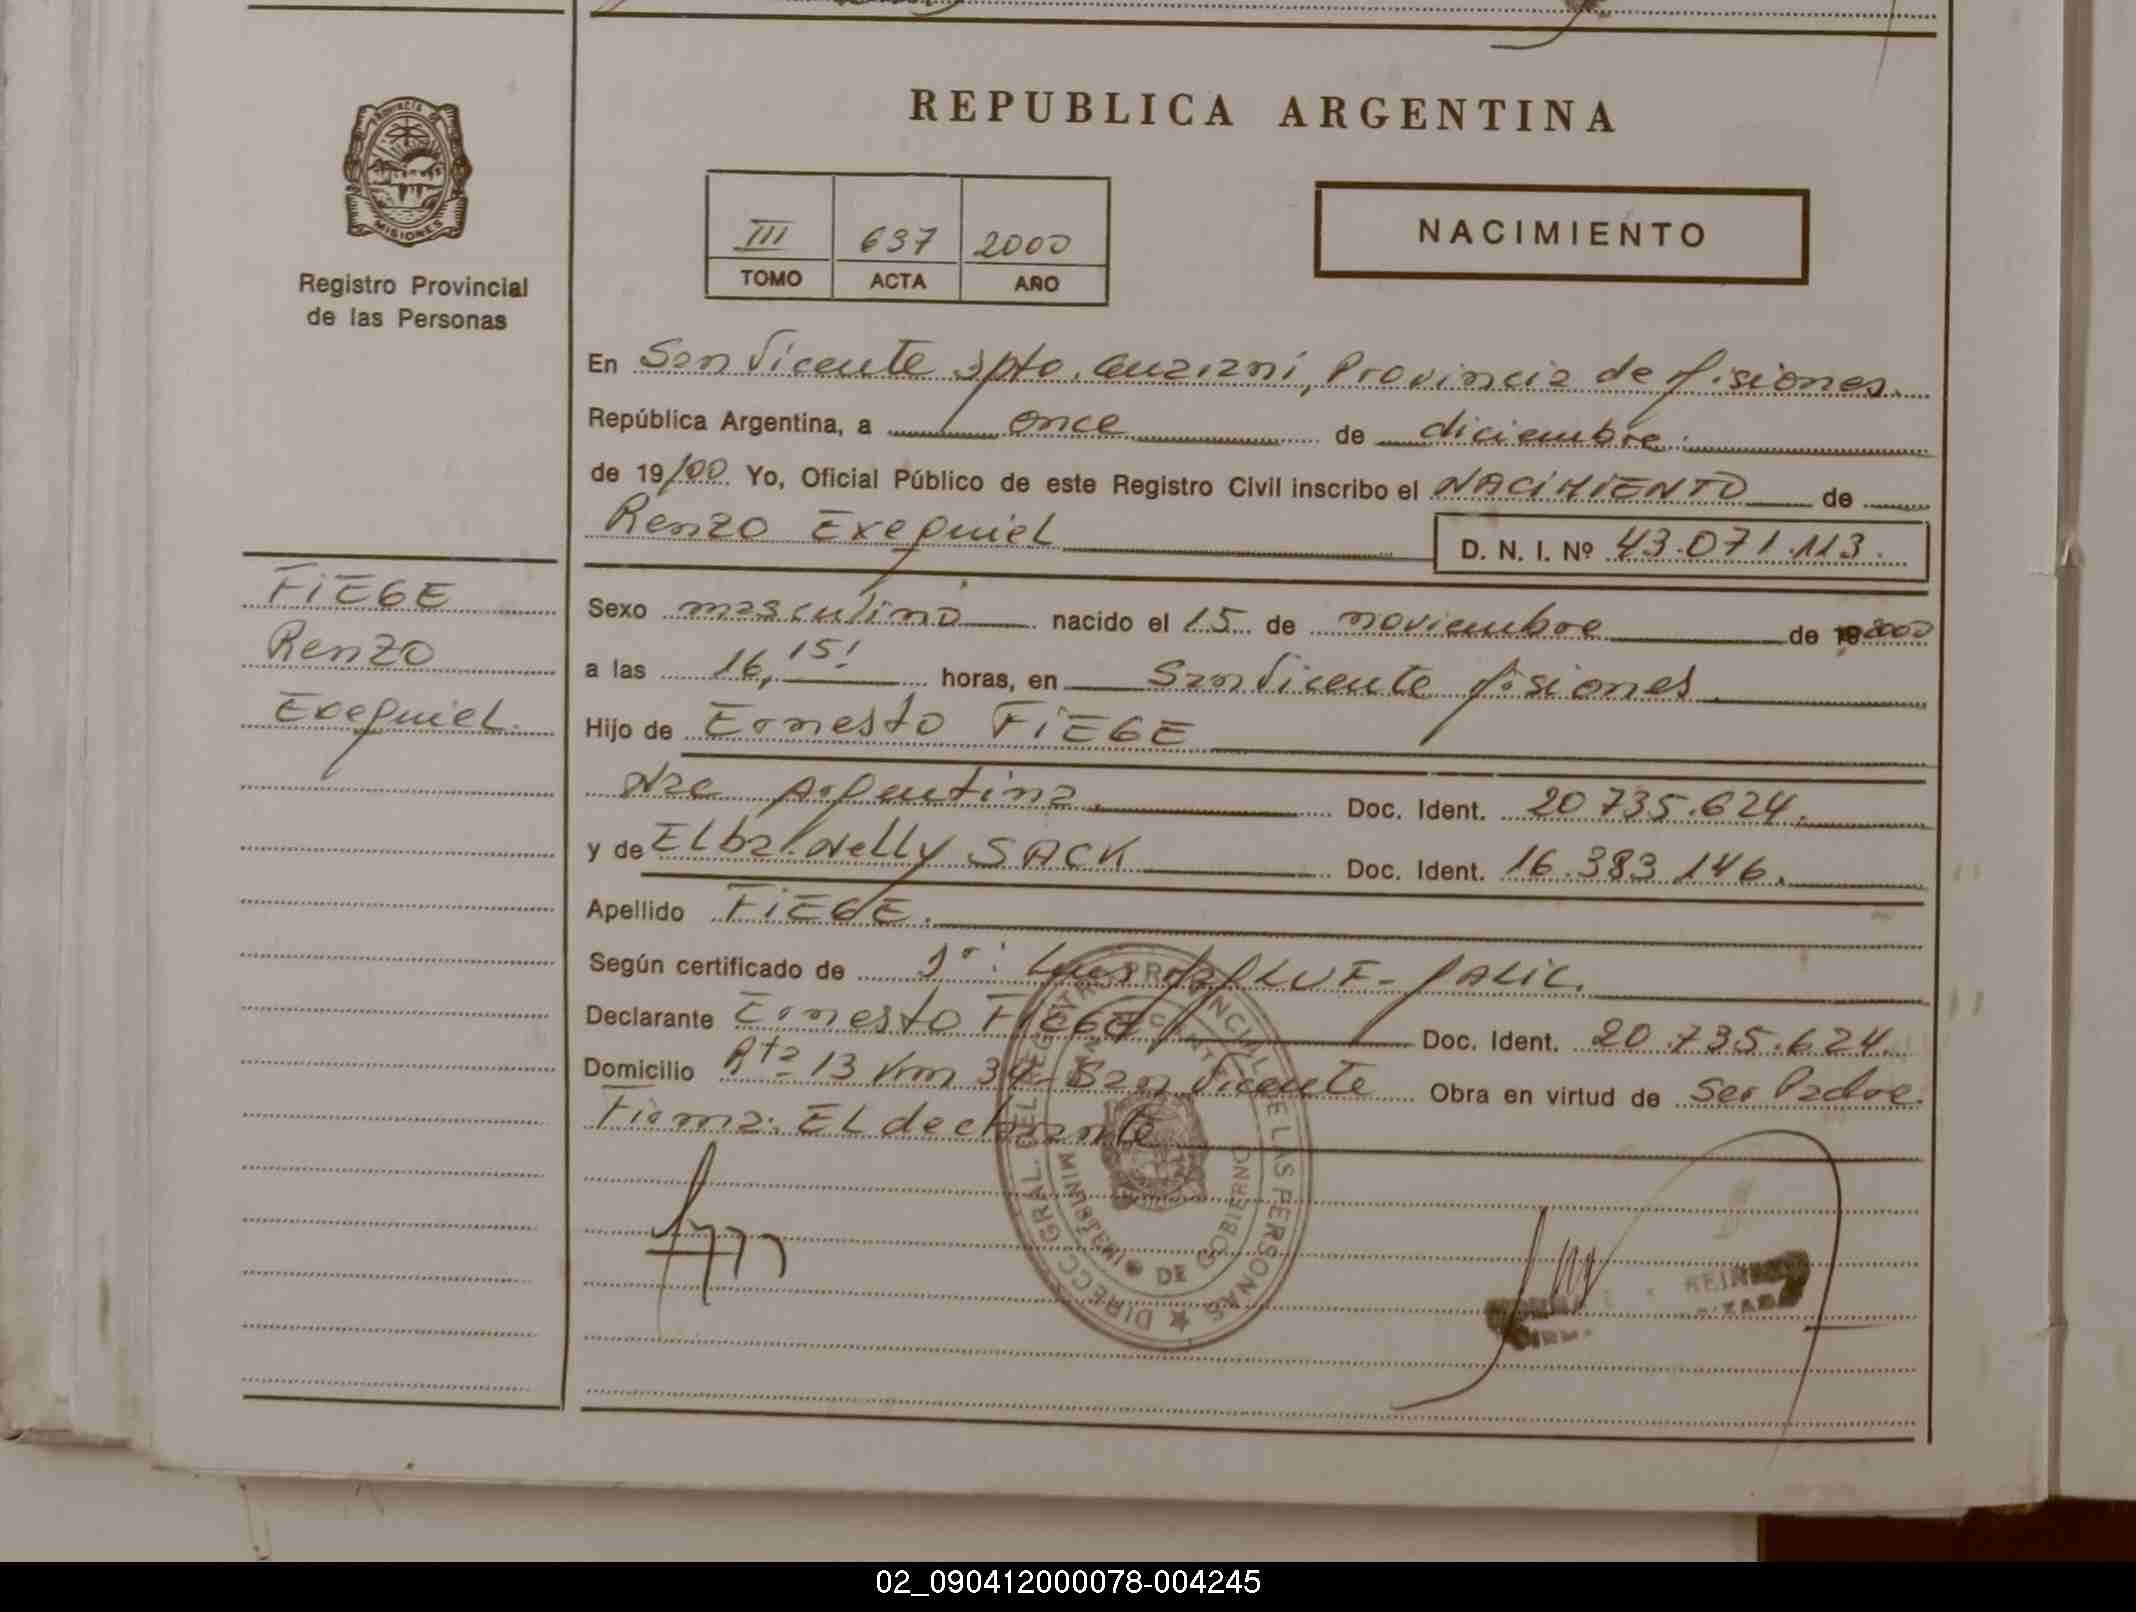 PROVINCIA DE
MISIONES
Registro Provincial
de las Personas
FiEGE
Renzo
Exequiel.
REPUBLICA ARGENTINA
III 637 2000
TOMO ACTA AÑO
NACIMIENTO
En San Vicente Dpto. Guaraní, Provincia de Misiones.
República Argentina, a once de diciembre.
de 19/00. Yo, Oficial Público de este Registro Civil inscribo el NACiMiENTO de
Renzo Exequiel D. N. I. Nº 43.071.113.
Sexo masculino nacido el 15 de noviembre de 2000
a las 16,15! horas, en San Vicente Misiones.
Hijo de Ernesto FiEGE
Nac Argentina. Doc. Ident. 20 735.624.
y de Elba Nelly SACK Doc. Ident. 16.383 146.
Apellido FiEGE.
Según certificado de
Declarante Ernesto FiEGE Doc. Ident. 20.735.624.
Domicilio Rta 13 Km 34- San Vicente Obra en virtud de Ser Padre.
Firma: El declarante
DIRECC GRAL. DEL REGISTRO PROVINCIAL DE LAS PERSONAS
MINISTERIO DE GOBIERNO
02_090412000078-004245